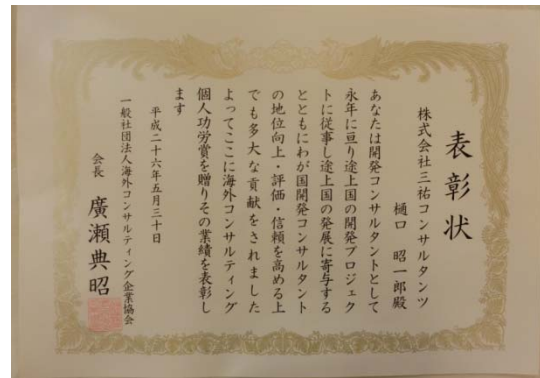 表彰状
株式会社三祐コンサルタンツ
樋口 昭一郎殿
あなたは開発コンサルタントとして
永年に亘り途上国の開発プロジェク
トに従事し途上国の発展に寄与する
とともにわが国開発コンサルタント
の地位向上・評価・信頼を高める上
でも多大な貢献をされました
よってここに海外コンサルティング
個人功労賞を贈りその業績を表彰し
ます
平成二十六年五月三十日
一般社団法人海外コンサルティング企業協会
会長 廣瀬典昭